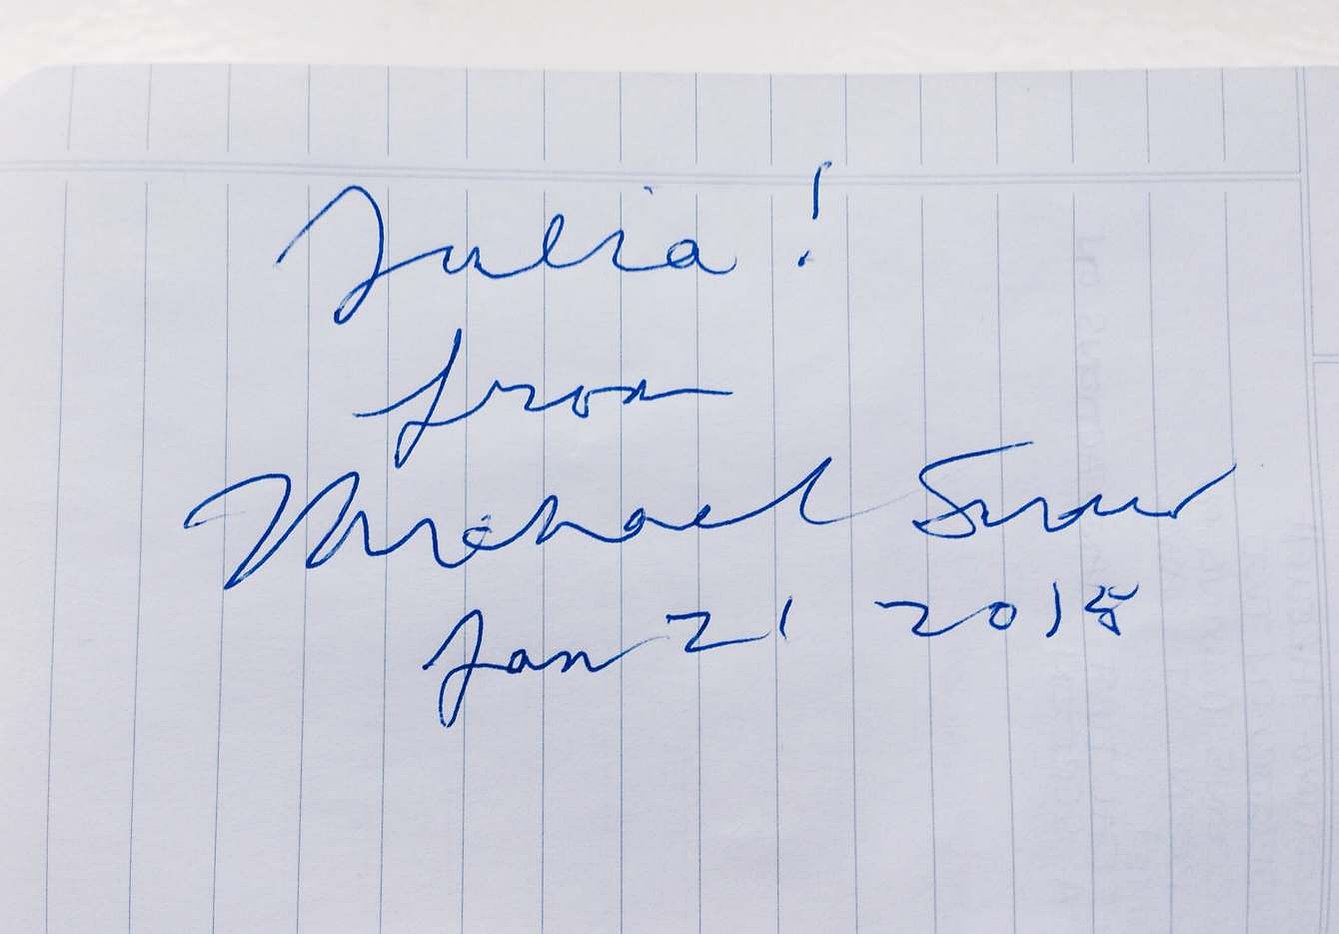 Julia!
from
Michael
Jan 21 2018